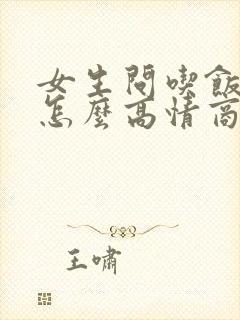 女生問喫飯
怎麼高情商
王嘯